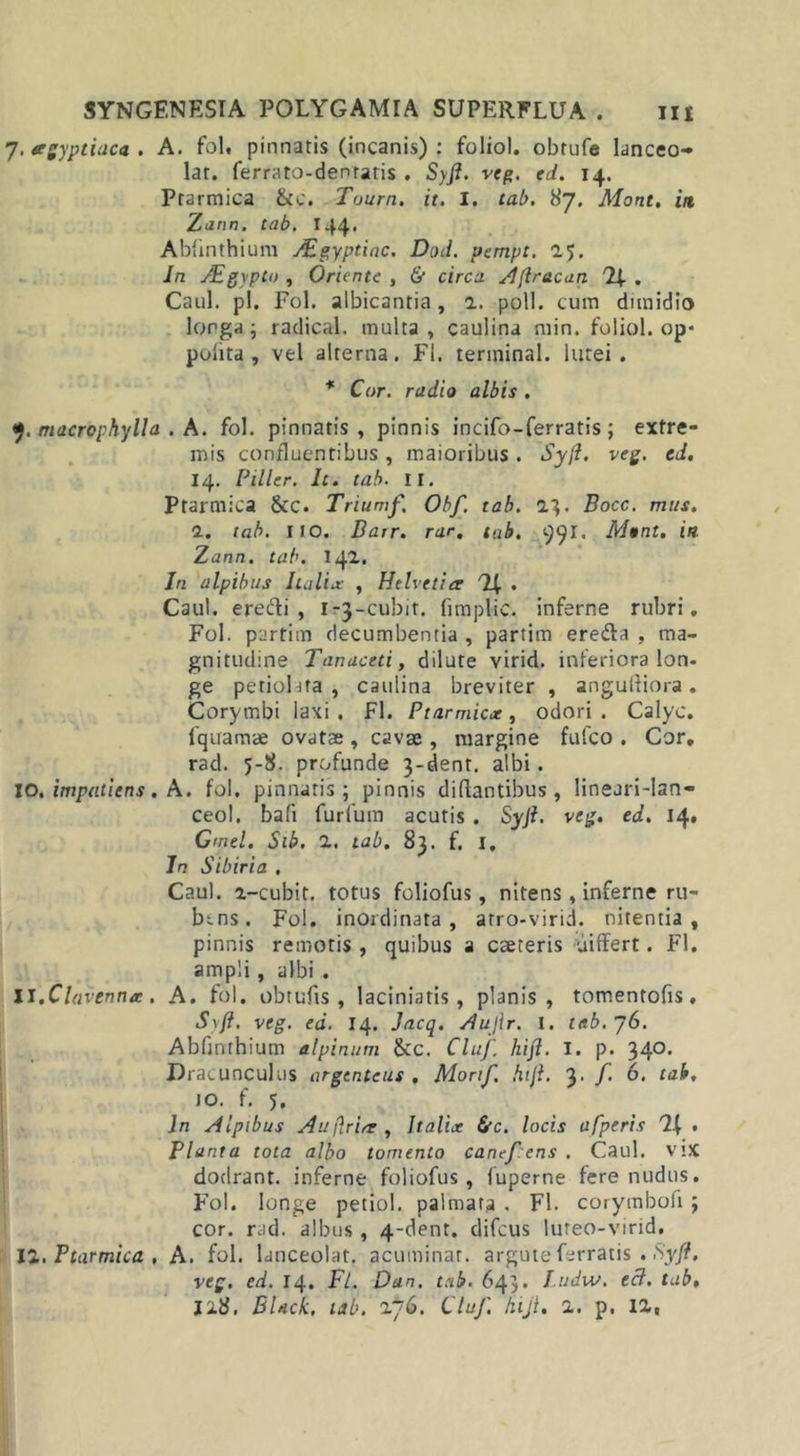 SYNGENESIA POLYGAMIA SUPERFLUA . 111
7. ægyptiaca . A. fol. pinnatis (incanis) : foliol. obtuſe lanceo-
lat. ferrato-dentatis . Syſt. veg. ed. 14.
Ptarmica &c. Tourn. it. I. tab. 87. Mont. in
Zann. tab. 144.
Abſinthium Ægyptiac. Dod. pempt. 25.
In Ægypto , Oriente , & circa Aſtracan ♃ .
Caul. pl. Fol. albicantia , 2. poll. cum dimidio
longa ; radical. multa , caulina min. foliol. op-
poſita , vel alterna . Fl. terminal. lutei .
* Cor. radio albis .
9. macrophylla . A. fol. pinnatis , pinnis inciſo-ſerratis ; extre-
mis confluentibus , maioribus . Syſt. veg. ed.
14. Piller. It. tab. 11.
Ptarmica &c. Triumf. Obſ. tab. 23. Bocc. mus.
2. tab. 110. Barr. rar. tab. 991. Mont. in
Zann. tab. 142.
In alpibus Italiæ , Helvetiæ ♃ .
Caul. erecti , 1-3-cubit. ſimplic. inferne rubri .
Fol. partim decumbentia , partim erecta , ma-
gnitudine Tanaceti, dilute virid. inferiora lon-
ge petiolata , caulina breviter , anguſtiora .
Corymbi laxi . Fl. Ptarmicæ , odori . Calyc.
ſquamæ ovatæ , cavæ , margine fuſco . Cor.
rad. 5-8. profunde 3-dent. albi .
10. impatiens . A. fol. pinnatis ; pinnis diſtantibus , lineari-lan-
ceol. baſi furſum acutis . Syſt. veg. ed. 14.
Gmel. Sib. 2. tab. 83. f. 1.
In Sibiria .
Caul. 2-cubit. totus folioſus , nitens , inferne ru-
bens . Fol. inordinata , atro-virid. nitentia ,
pinnis remotis , quibus a cæteris differt . Fl.
ampli , albi .
11. Clavennæ . A. fol. obtuſis , laciniatis , planis , tomentoſis .
Syſt. veg. ed. 14. Jacq. Auſtr. 1. tab. 76.
Abſinthium alpinum &c. Cluſ. hiſt. 1. p. 340.
Dracunculus argenteus . Moriſ. hiſt. 3. ſ. 6. tab.
10. f. 5.
In Alpibus Auſtriæ , Italiæ &c. locis aſperis ♃ .
Planta tota albo tomento caneſcens . Caul. vix
dodrant. inferne folioſus , ſuperne fere nudus .
Fol. longe petiol. palmata . Fl. corymboſi ;
cor. rad. albus , 4-dent. diſcus luteo-virid.
12. Ptarmica . A. fol. lanceolat. acuminat. argute ſerratis . Syſt.
veg. ed. 14. Fl. Dan. tab. 643. Ludw. ect. tab.
128. Black. tab. 276. Cluſ. hiſt. 2. p. 12.